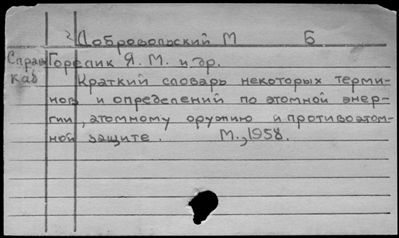 2 Добровольский М Б
Справ Горелик Я. М. и др.
каб Краткий словарь некоторых терми-
нов и определений по атомной энер-
гии, атомному оружию и противоатом-
ной защите. М., 1958.